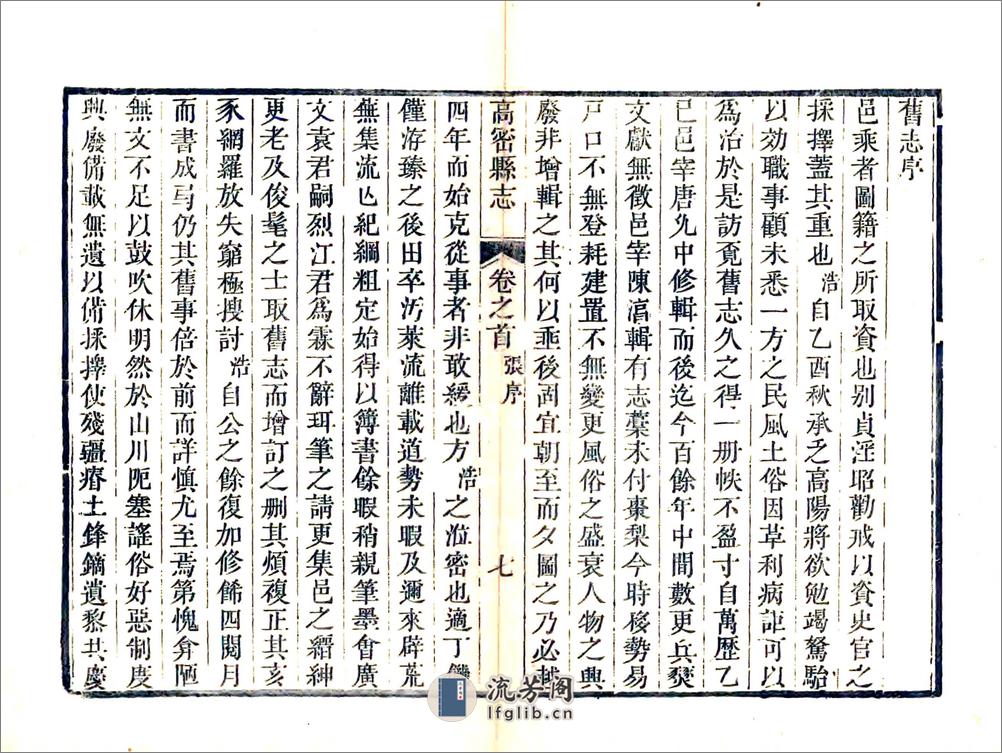 舊志序
邑乘者圖籍之所取資也别貞淫昭勸戒以資史官之
採擇蓋其重也浩自乙酉秋承乏高陽將欲勉竭駑駘
以効職事顧未悉一方之民風土俗因草利病詎可以
為治於是訪覓舊志久之得一册帙不盈寸自萬歷乙
巳邑宰唐允中修輯而後迄今百餘年中間數更兵燹
文獻無徵邑宰陳滈輯有志藁未付棗梨今時移勢易
戸口不無登耗建置不無變更風俗之盛衰人物之興
廢非增輯之其何以垂後剞宜朝至而夕圖之乃必越
高密縣志 卷之首 張序 七
四年而始克從事者非敢緩也方浩之涖密也適丁饑
僅洊臻之後田卒汚萊流離載道勢未暇及邇來辟荒
蕪集流亾紀綱粗定始得以簿書餘暇稍親筆墨會廣
文袁君嗣烈江君為霖不辭珥筆之請更集邑之縉紳
更老及俊髦之士取舊志而增訂之刪其煩複正其亥
豕網羅放失窮極搜討浩自公之餘復加修餙四閱月
而書成焉仍其舊事倍於前而詳慎尤至焉第愧弇陋
無文不足以鼓吹休明然於山川阨塞謠俗好惡制度
興廢備載無遺以備採擇使殘疆瘠土鋒鏑遺黎共慶
流芳阁
lfglib.cn